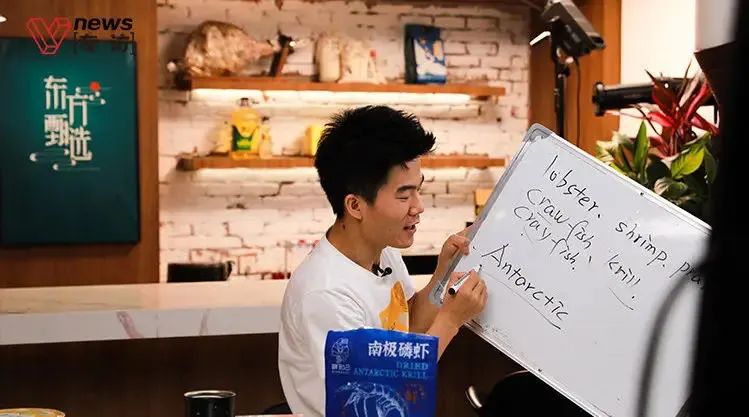 news
东方
甄选
lobster、shrimp、pra
craw-fish、
cray-fish、krill.
Antarctic
南极磷虾
DRIED
ANTARCTIC KRILL